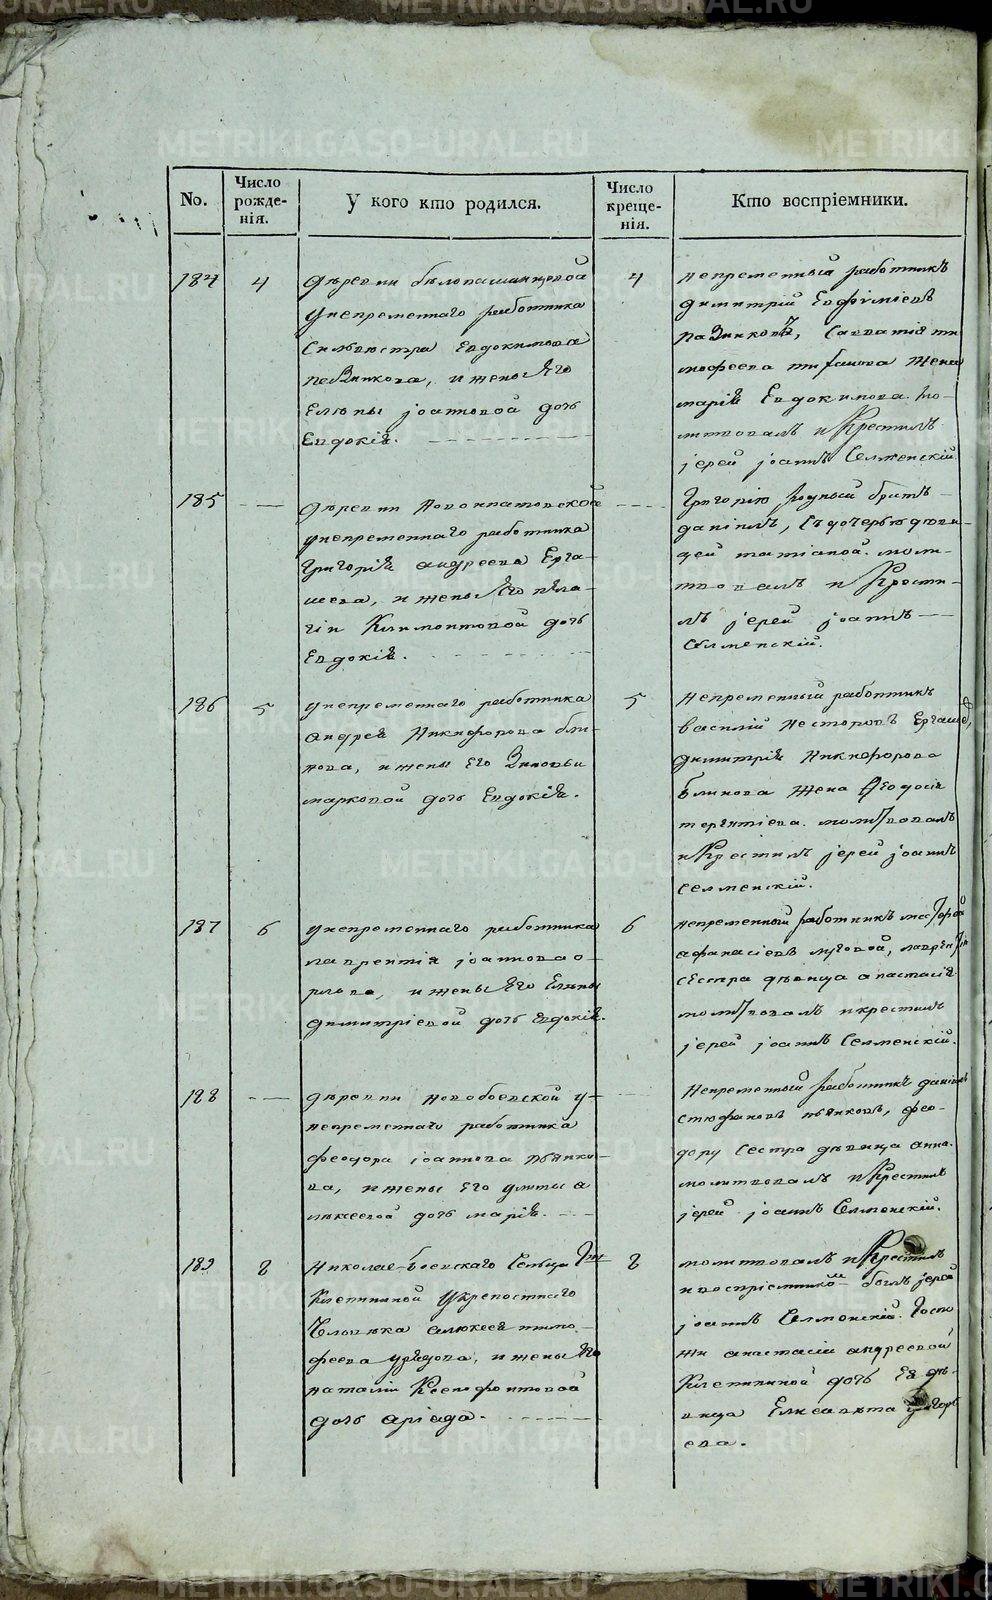 No.
Число рожденія.
У кого кто родился.
Число крещенія.
Кто воспріемники.
184
4
деревни белопашинцовой
унепременнаго работника
Сильвестра Евдокимова
певзикова, и жены Его
Елены іоанновой дочь
Евдокія.
4
непременный работникъ
димитрій Евфуміевъ
Савватія ти
мофеева жена
марія Евдокимова. мо-
литвовалъ и Крестилъ
іерей іоаннъ Селменскій.
185
деревни
унепременнаго работника
Григорія андреева Ерга-
шева, и жены Его пела-
гіи Климонтовой дочь
Евдокія.
Григорію родный братъ
даніилъ, съ дочерью деви-
цей татіаной. моли-
твовалъ и Крести-
лъ іерей іоаннъ
Селменскій.
186
5
унепременнаго работника
андрея Никифорова бли-
нова, и жены Его Зиновьи
марковой дочь Евдокія.
5
непременный работникъ
василій несторовъ Ергашев,
димитрія Никифорова
блинова жена Феодосія
терентіева. молитвовалъ
и Крестилъ іерей іоаннъ
Селменскій.
187
6
унепременнаго работника
лаврентія іоаннова о-
рлова, и жены Его Елены
димитріевой дочь Евдокія.
6
непременный работникъ
афанасіевъ луговой,
сестра девица анастасія
молитвовалъ и крестилъ
іерей іоаннъ Селменскій.
188
деревни новобоевской у-
непременнаго работника
феодора іоаннова пьянко-
ва, и жены Его улиты а
лексеевой дочь марія.
Непременный работникъ даніилъ
стефановъ пьянковъ, фео-
дору сестра девица анна.
молитвовалъ и Крестилъ
іерей іоаннъ Селменскій.
189
8
Николае-боевскаго Сельца Гжи
Клепининой Укрепостнаго
Человека алексея тимо-
феева, и жены Его
наталіи Ксенофонтовой
дочь аріада.
8
молитвовалъ и Крестилъ
и воспріемникомъ былъ іерей
іоаннъ Селменскій. Госпо
жи анастасіи андреевой
Клепининой дочь Ея де-
вица Елисавета Григорь
ева.
METRIKI.GASO-URAL.RU